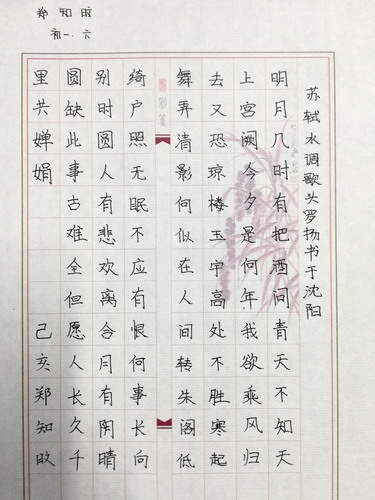 郑知旼
初一.六
苏轼水调歌头罗扬书于沈阳
明月几时有把酒问青天不知天
上宫阙今夕是何年我欲乘风归
去又恐琼楼玉宇高处不胜寒起
舞弄清影何似在人间转朱阁低
绮户照无眠不应有恨何事长向
别时圆人有悲欢离合月有阴晴
圆缺此事古难全但愿人长久千
里共婵娟 己亥郑知旼